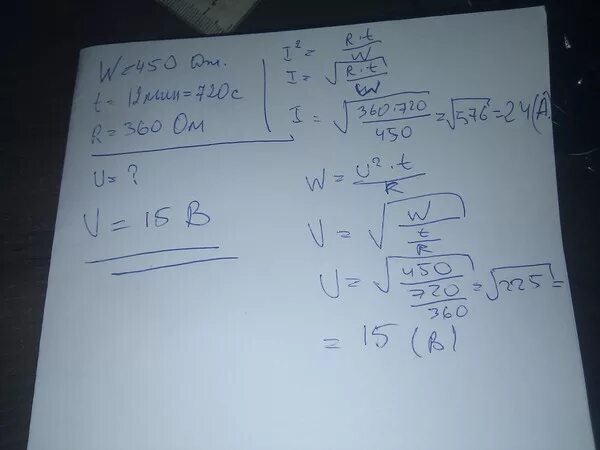 W=450 Дж.
t = 12мин=720с
R=360 Ом
U=?
U = 15 В
I² = R·t/W
I = √(R·t/W)
I = √(360·720/450) =√576=24(А)
W = U²·t/R
U = √(W/(t/R))
U = √(450/(720/360)) =√225 =
= 15 (В)